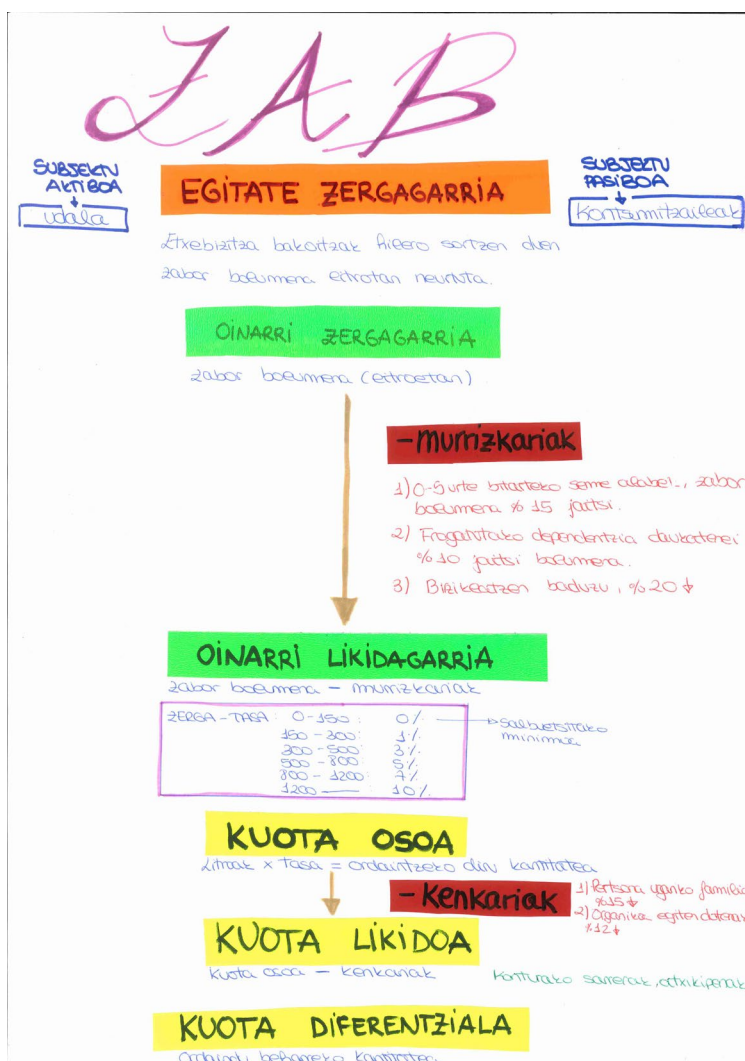 ZAB
SUBJEKTU
AKTIBOA
udala
EGITATE ZERGAGARRIA
SUBJEKTU
PASIBOA
Kontsumitzaileak
Etxebizitza bakoitzak hilero sortzen duen
zabor bolumena litrotan neurtuta.
OINARRI ZERGAGARRIA
zabor bolumena (litroetan)
- murrizkariak
1) 0-5 urte bitarteko seme alabe1_, zabor
bolumena % 15 jaitsi.
2) Frogatutako dependentzia daukatenei
% 10 jaitsi bolumena.
3) Birziklatzen baduzu, % 20 ↓
OINARRI LIKIDAGARRIA
zabor bolumena - murrizkariak
ZERGA-TASA: 0-150: 0% → Salbuetsitako
minimoa
150-300: 1%
300-500: 3%
500-800: 5%
800-1200: 7%
1200 — : 10%
KUOTA OSOA
Litroak x tasa = ordaintzeko diru kantitatea
- Kenkariak
1) Pertsona ugariko familia
%15 ↓
2) Organika egiten dutenak
%12 ↓
KUOTA LIKIDOA
Kuota osoa - kenkariak
Konturako sarrerak, atxikipenak
KUOTA DIFERENTZIALA
Ordaindu beharreko kantitatea.